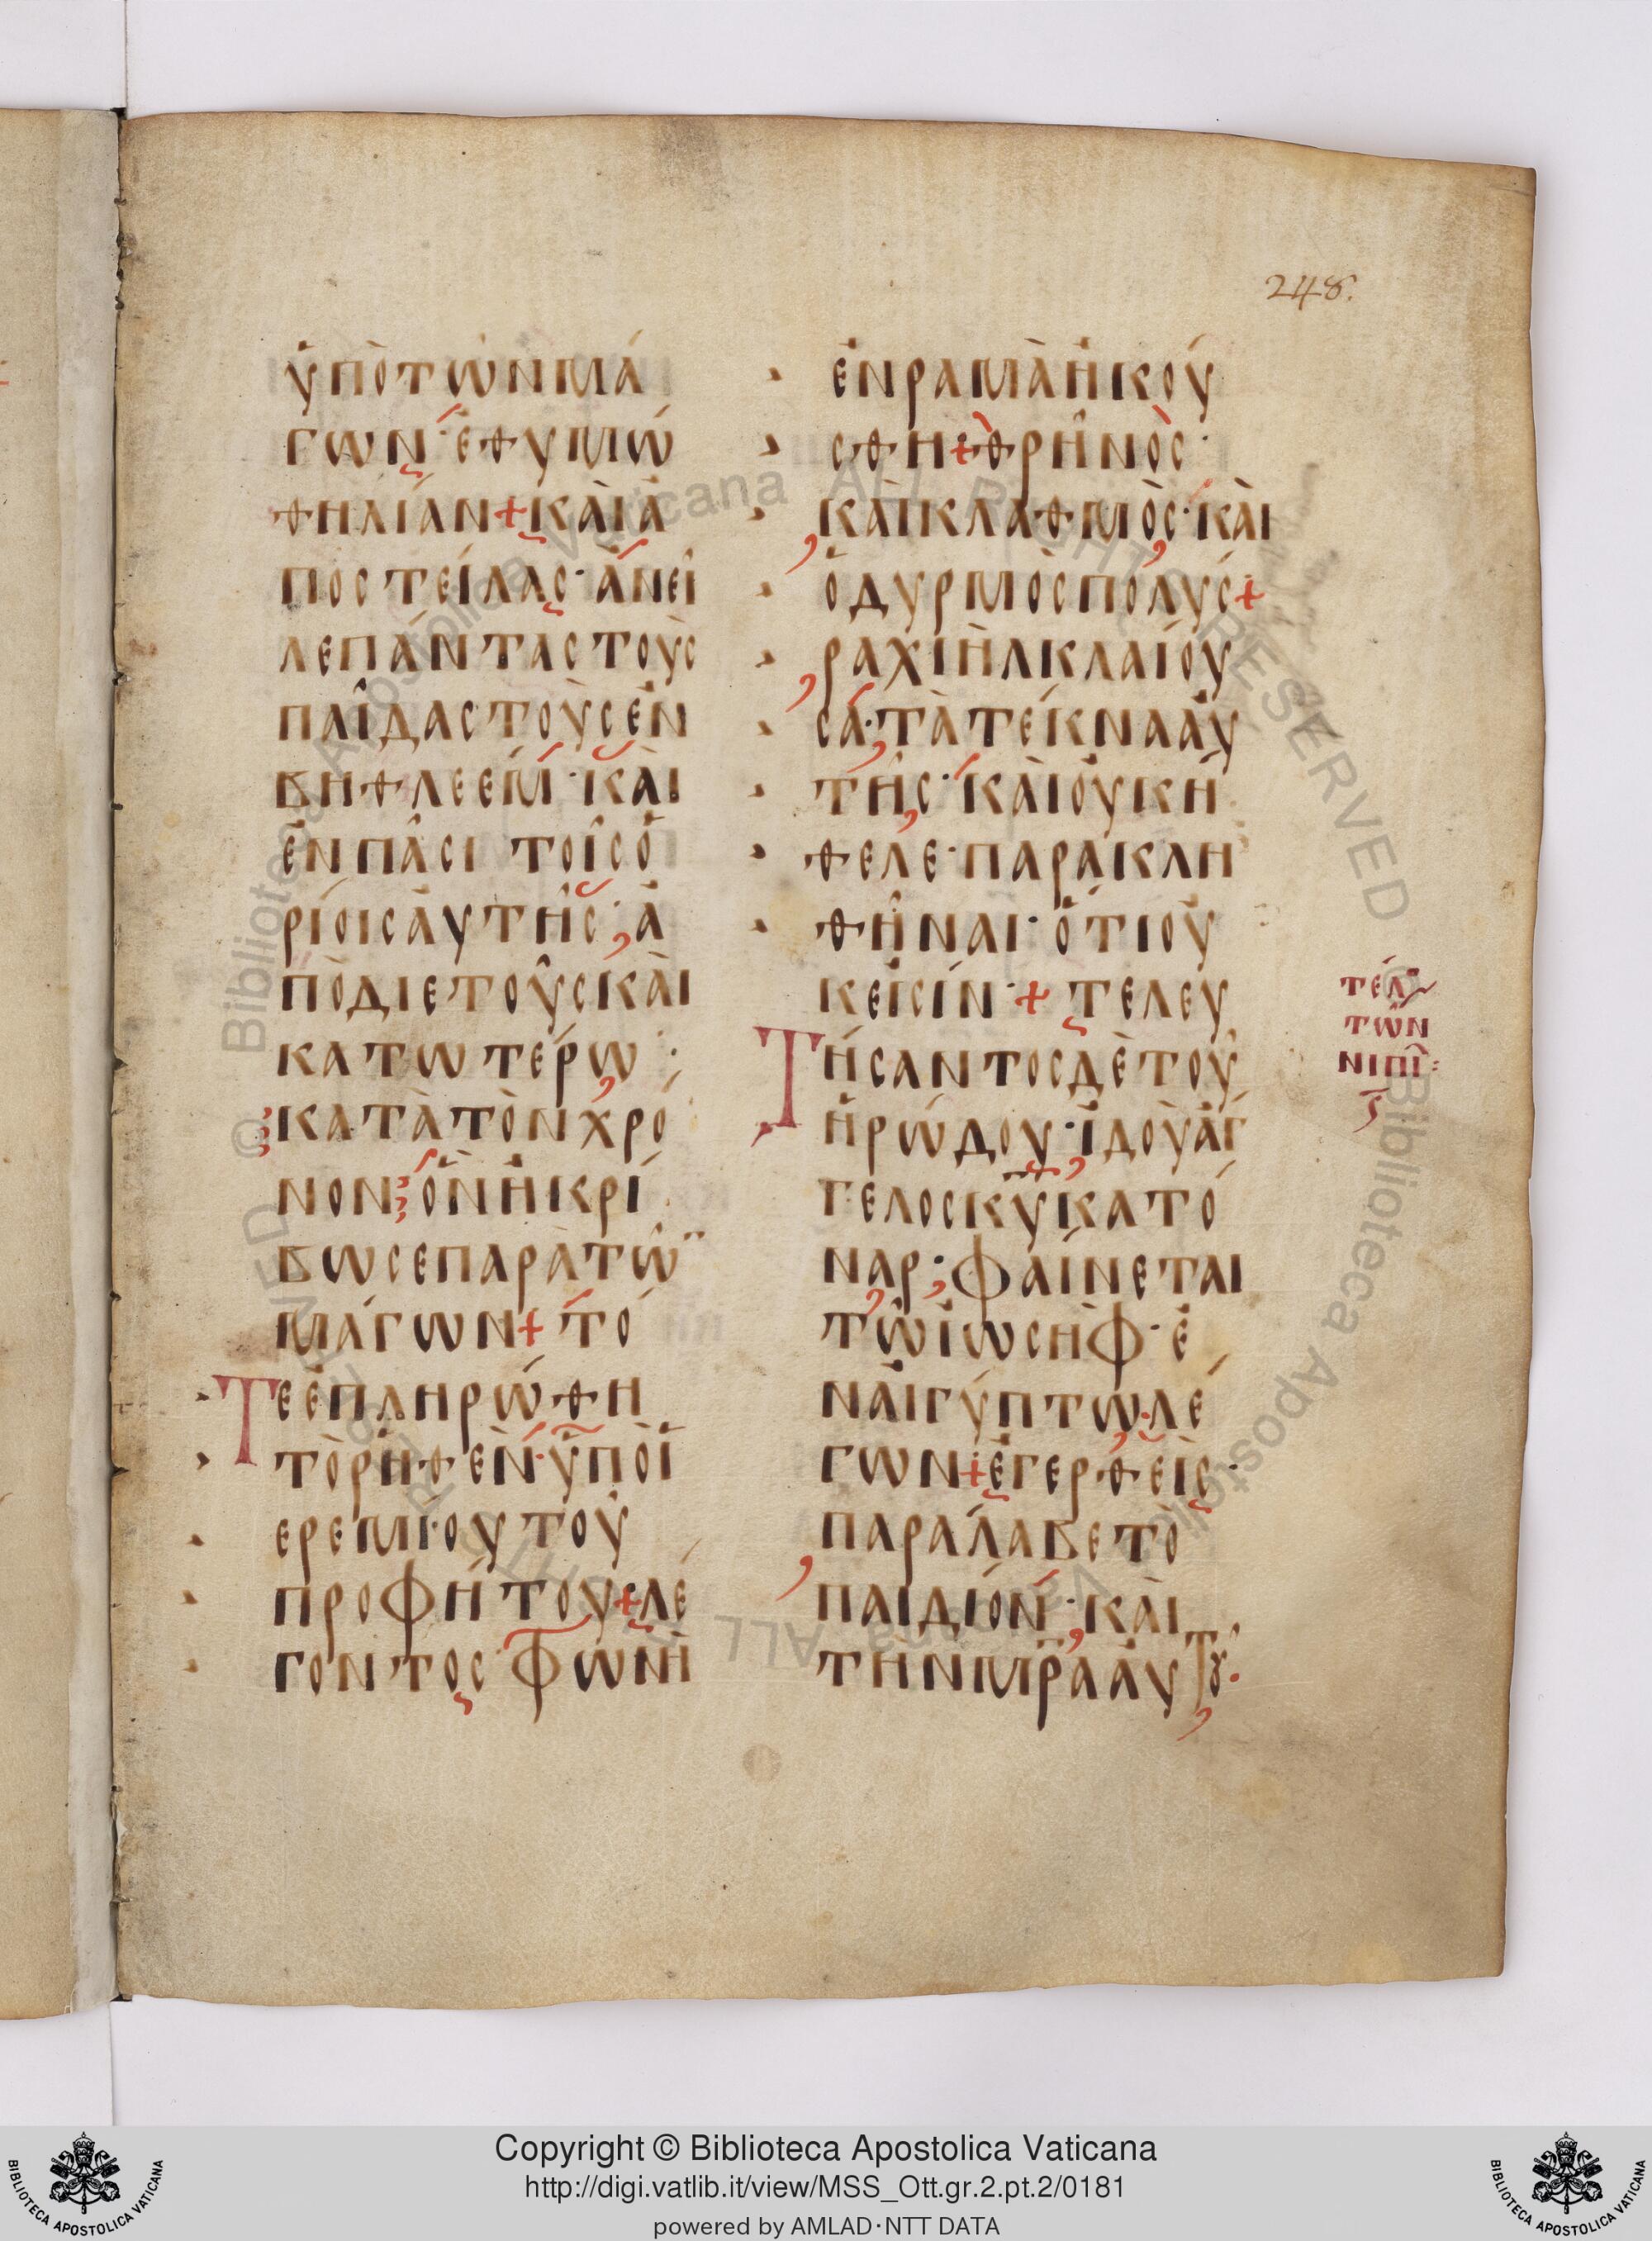 248.
ὑπὸτῶνμά
γων·ἐθυμώ
θηλίαν+κὰιἀ
ποστείλας·ἀνεῖ
λεπάνταςτοὺς
παῖδαςτοὺςἐν
βηθλεέμ·κὰι
ἐνπᾶσιτοῖςὁ
ρίοιςἀυτῆς·ἀ
πὸδιετοῦςκὰι
κατωτέρω·
κατὰτὸνχρό
νονὃνἠκρί
βωσεπαρὰτῶ
μάγων+τό
Τεἐπληρώθη
τὸρηθὲν·ὑπὸϊ
ερεμίουτοῦ
προφήτου+λέ
γοντος·Φωνὴ
ἐνραμὰἠκού
σθη+θρῆνὸς·
κὰικλαθμὸς·κὰι
ὀδυρμὸςπολύς+
ραχιὴλκλαίου
σά·τὰτέκναἀυ
τῆς·κὰιὀυκἤ
θελε·παρακλη
θῆναι·ὅτιοὐ
κεἰσίν·+τελευ
Τήσαντοςδὲτοῦ
ἡρώδου·ἰδοὺἄγ
γελοςκυκατό
ναρ·φαίνεται
τῶἰωσὴφ·ἐ
νἀιγύπτω·λέ
γων+ἐγερθεὶς·
παράλαβετὸ
παιδίον·κὰι
τὴνμραἀυτοῦ·
τέλ
τῶν
νιπί:
Copyright © Biblioteca Apostolica Vaticana
http://digi.vatlib.it/view/MSS_Ott.gr.2.pt.2/0181
powered by AMLAD·NTT DATA
BIBLIOTECA APOSTOLICA VATICANA
BIBLIOTECA APOSTOLICA VATICANA